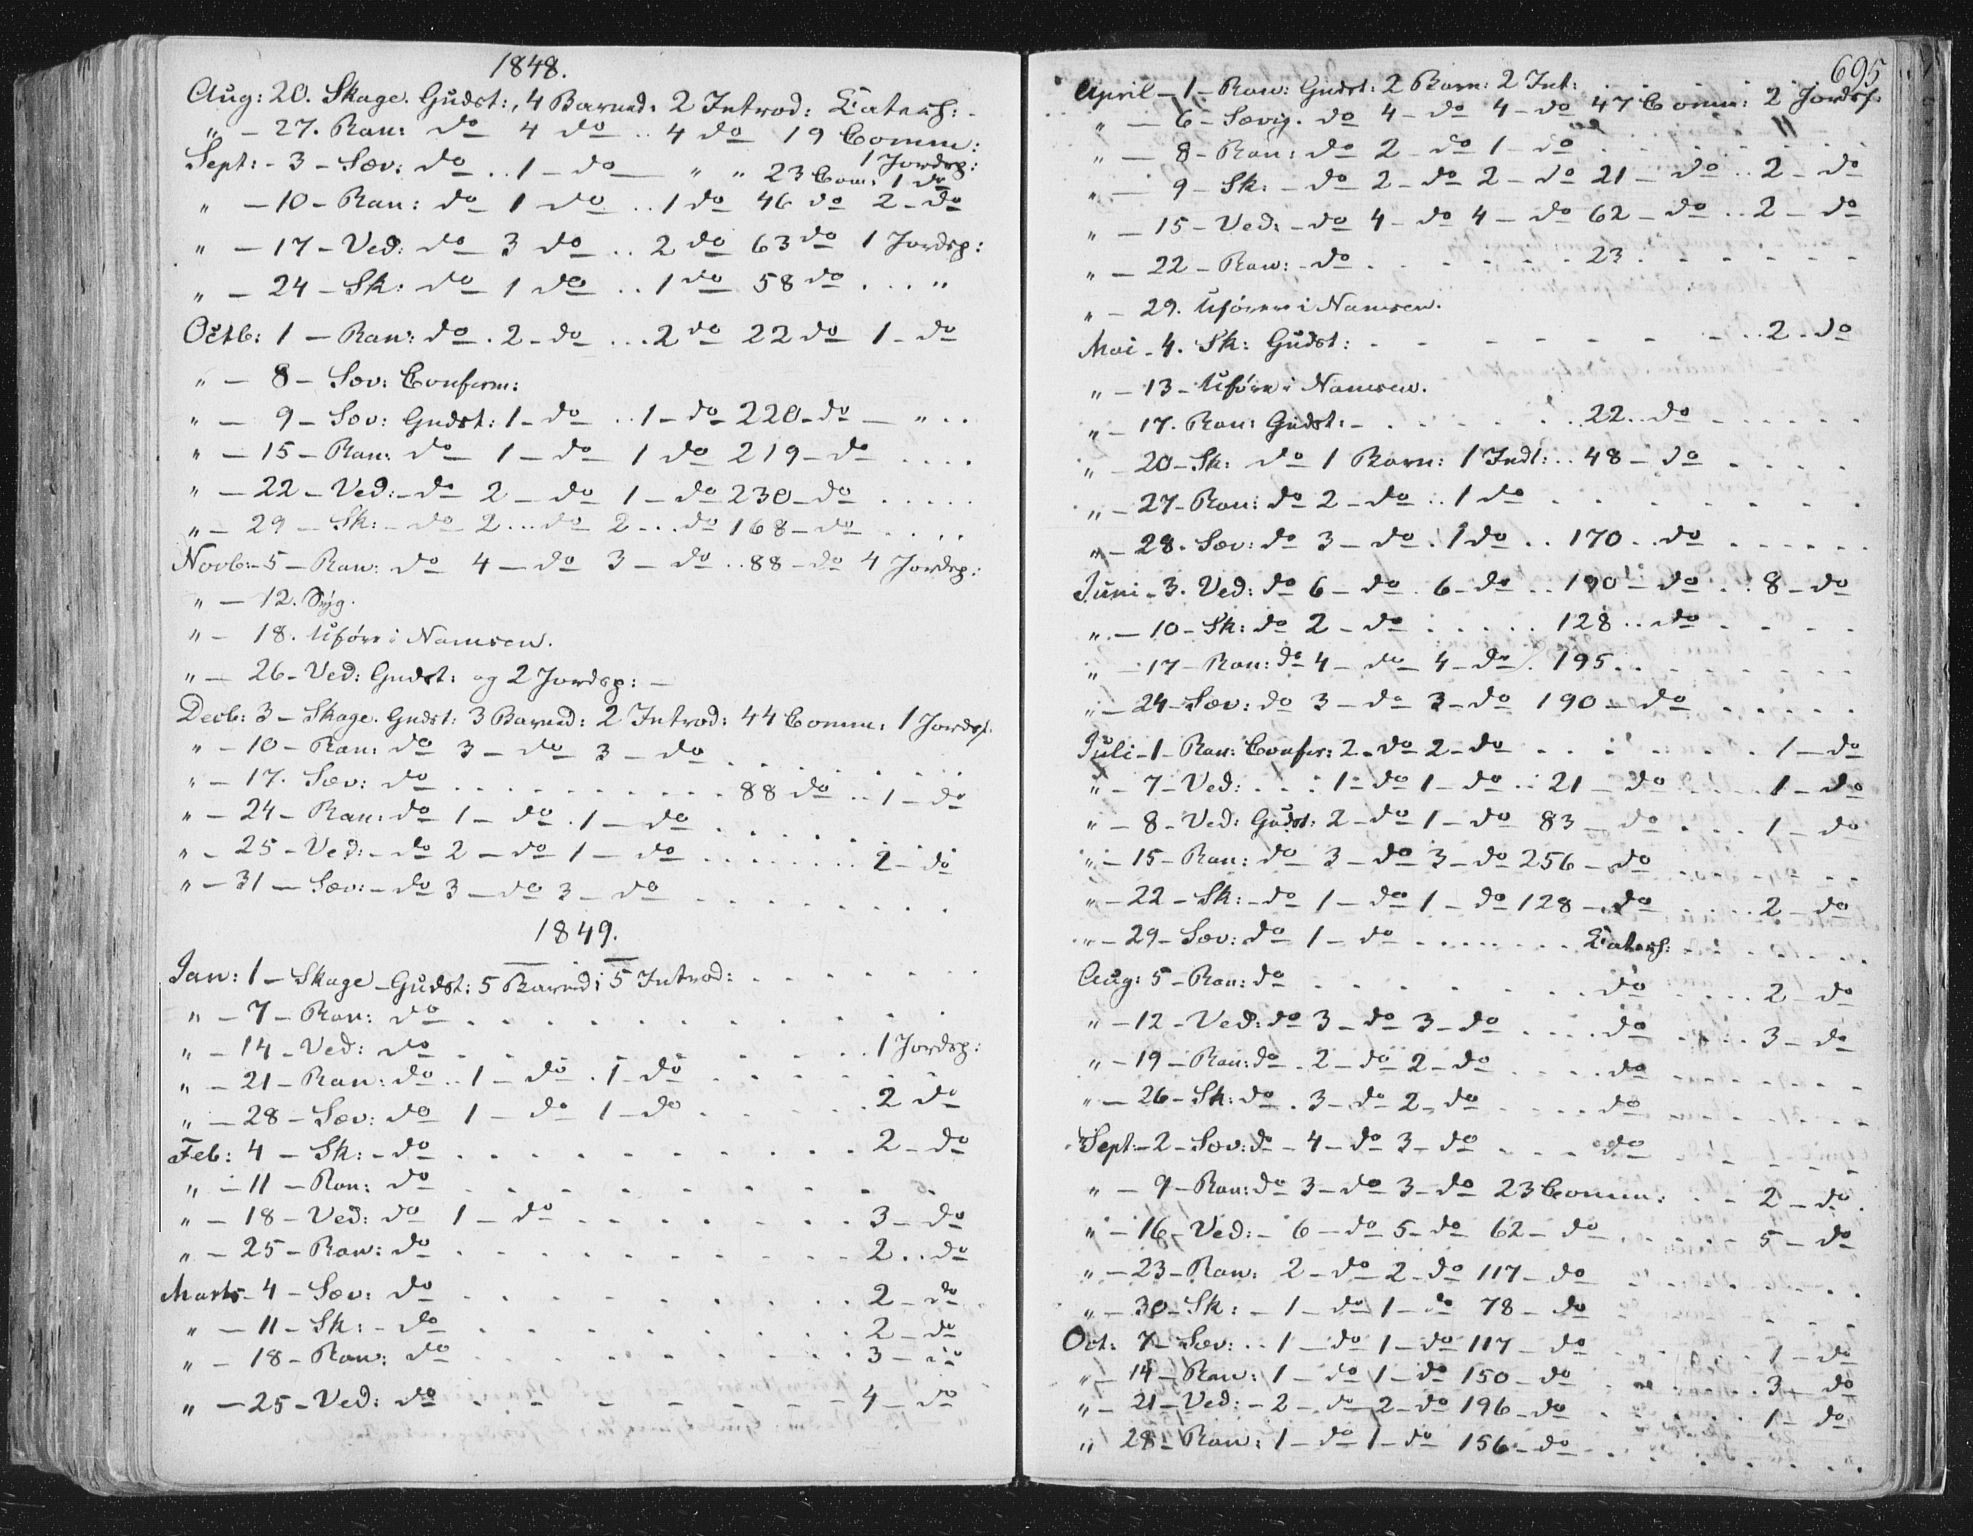 1848.
Aug: 20. Skage. Gudst:, 4 Barned: 2 Introd: Catech: -
" - 27. Ran: do 4 do .. 4 do 19 Comm:
1 Jordsp:
Sept: - 3 - Sæv: do .. 1 - do — " " 23 Com: 1 do
" - 10 - Ran: do 1 do .. 1 do 46 do 2 - do
" - 17 - Ved: do 3 do .. 2 do 63 do 1 Jordsp:
" - 24 - Sk: do 1 do .. 1 do 58 do . . . "
Octb: 1 - Ran: do . 2 - do ... 2 do 22 do 1 - do
" - 8 - Sæv: Confirm:
" - 9 - Sæv: Gudst: 1 - do .. 1 - do 220 - do - " . .
" - 15 - Ran: do 1 - do 1 do 219 - do . . . .
" - 22 - Ved: - do 2 - do 1 - do 230 - do . . . . .
" - 29 - Sk: - do 2 ... do 2 ... do 168 - do . . . .
Novb: - 5 - Ran: do 4 - do 3 - do .. 88 - do 4 Jordsp:
" - 12. Syg.
" - 18. Uføre i Namsen.
" - 26 - Ved: Gudst: og 2 Jordsp: -
Decb: 3 - Skage. Gudst: 3 Barned: 2 Introd: 44 Comm: 1 Jordsp.
" - 10 - Ran: do 3 - do 3 - do . . . . . . .
" - 17. Sæv: do . . . . . . . . . 88 do .. 1 - do
" - 24 - Ran: do 1 - do . 1 - do . . . . . .
" - 25 - Ved: - do 2 - do 1 - do . . . . . . . . 2 - do
" - 31 - Sæv: - do 3 - do 3 - do . . . . . . . .
1849.
Jan: 1 - Skage - Gudst: 5 Barned: 5 Introd: . . . . . . .
" - 7 - Ran: do . . . . . . . . . . .
" - 14 - Ved: do . . . . . . . . . 1 Jordsp:
" - 21 - Ran: do .. 1 - do . 1 - do . . . . . . .
" - 28 - Sæv: do 1 - do 1 - do . . . . . 2 do
Feb: 4 - Sk: - do . . . . . . . . . . 2 - do
" - 11 - Ran: do . . . . . . . . . . .
" - 18 - Ved: do 1 - do . . . . . . . . 3 - do
" - 25 - Ran: do . . . . . . . . . . 2 .. do
Marts - 4 - Sæv: do . . . . . . . . . . 2 - do
" - 11 - Sk: - do . . . . . . . . . . 2 - do
" - 18 - Ran: do . . . . . . . . . . 3 - do
" - 25 - Ved: do . . . . . . . . . 4 - do
695
April - 1 - Ran: Gudst: 2 Barn: 2 Int: . . . . . .
" - 6 - Sævig. do 4 - do 4 - do 47 Comm: 2 Jordsp.
" - 8 - Ran: do 2 - do 1 - do . . . . . . .
" - 9 - Sk: - do 2 - do 2 - do 21 - do .. 2 - do
" - 15 - Ved: - do 4 - do 4 - do 62 - do .. 2 - do
" - 22 - Ran: - do . . . . . . 23 . . . . . .
" - 29. Uføre i Namsen.
Mai - 4. Sk: Gudst: . . . . . . . . . 2 - do
" - 13 - Uføre i Namsen.
" - 17. Ran: Gudst: - . . . . . 22 .. do . . . . .
" - 20 - Sk: do 1 Barn: 1 Indl: .. 48 - do . . . .
" - 27 - Ran: do 2 - do .. 1 do . . . . . . .
" - 28. Sæv: do 3 - do . 1 do .. 170 .. do . . . . .
Juni - 3. Ved: do 6 - do . 6 - do .. 190 - do . . 8 - do
" - 10 - Sk: do 2 - do . . . . . 128 .. do . . . .
" - 17 - Ran: do 4 - do 4 - do . 195 . . . . . .
" - 24 - Sæv: do 3 - do 3 - do 190 - do . . . . .
Juli - 1 - Ran: Confir: 2 - do 2 - do . . . . . . . 1 - do
" - 7 - Ved: . . . 1 - do 1 - do .. 21 - do . . . . 1 - do
" - 8 - Ved: Gudst: 2 - do 1 - do 83 - do . . . 1 - do
" - 15 - Ran: do 3 - do 3 - do 256 - do . . . . .
" - 22 - Sk: - do 1 - do 1 - do 128 - do . . . . 2 - do
" - 29 - Sæv: do 1 - do . . . . . . . Catech: . . . . .
Aug: 5 - Ran: do . . . . . . . do . . . . 2 - do
" - 12 - Ved: do 3 - do 3 - do . . . . do . . . . 3 - do
" - 19 - Ran: do . 2 - do 2 - do . . . . do . . . . . .
" - 26 - Sk: do . 3 - do 2 - do . . . . do
Sept: - 2 - Sæv: do - 4 - do 3 - do . . . . do
" - 9 - Ran: do 3 - do 3 - do 23 Comm: . . 2 - do .
" - 16 - Ved: - 6 - do 5 - do 62 - do . . . . . 5 - do
" - 23 - Ran: 2 - do 2 - do 117 - do . . . . . .
" - 30 - Sk: - 1 - do 1 - do 78 - do . . . .
Oct: 7 - Sæv: .. 1 - do 1 - do 117 - do . . . . . 1 - do
" - 14 - Ran: 1 - do 1 - do 150 - do . . . . . 3 - do
" - 21 - Ved: - 2 - do 2 - do 196 - do . . . . . 1 - do
" 28 - Ran: 1 - do 1 - do 156 - do . . . . . . .